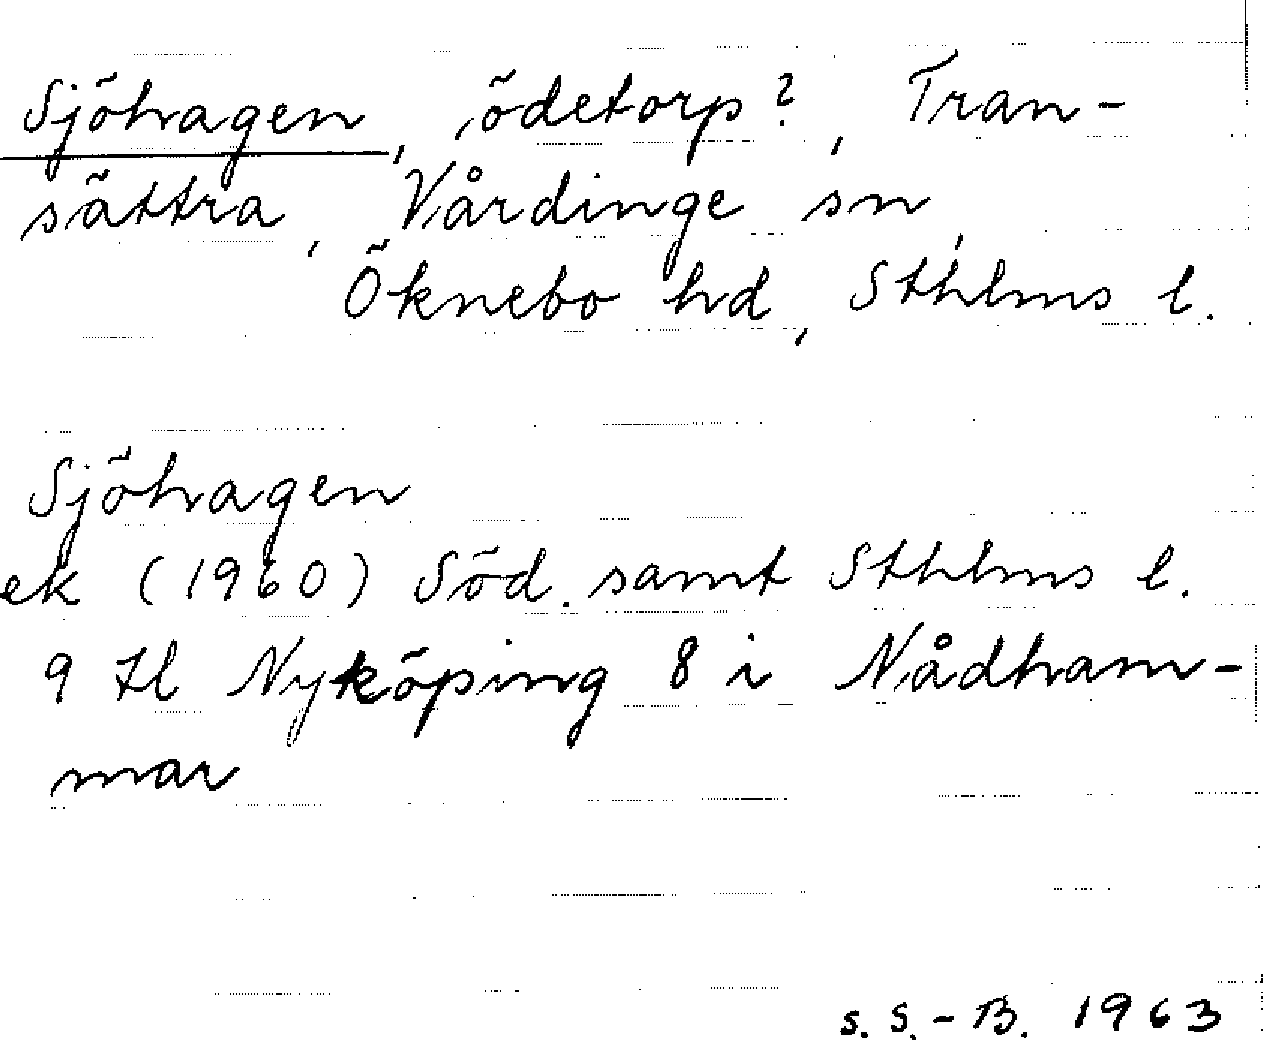 Sjöhagen, ödetorp?, Tran-
sättra, Vårdinge sn,
Öknebo hd, Sthlms l.
Sjöhagen
ek (1960) Söd. samt Sthlms l.
9 tl Nyköping 8 i Nådham-
mar
S. S.-B. 1963